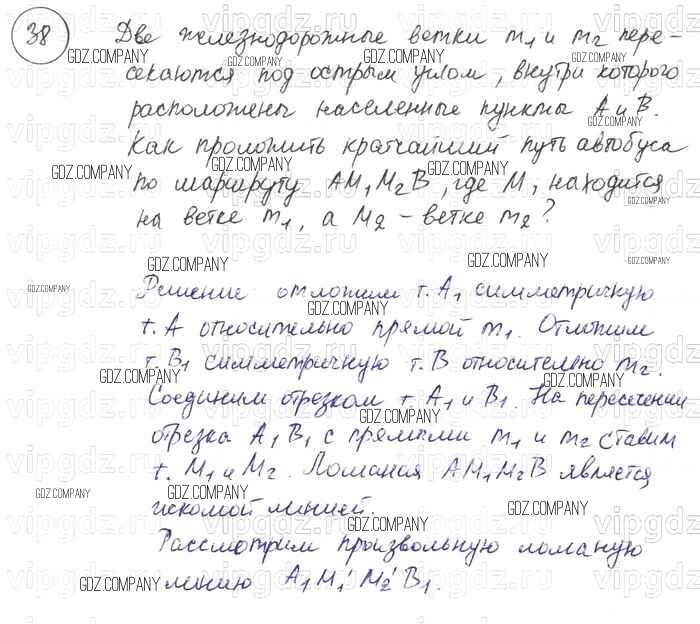 38 Две железнодорожные ветки m1 и m2 пере-
секаются под острым углом, внутри которого
расположены населенные пункты А и В.
Как проложить кратчайший путь автобуса
по маршруту AM1M2B, где M1 находится
на ветке m1, а M2 – ветке m2?
Решение отложим т. A1 симметричную
т. A относительно прямой m1. Отложим
т. B1 симметричную т. B относительно m2.
Соединим отрезком т. A1 и B1. На пересечении
отрезка A1B1 с прямыми m1 и m2 ставим
т. M1 и M2. Ломаная AM1M2B является
искомой линией.
Рассмотрим произвольную ломаную
линию A1M1'M2'B1.
GDZ.COMPANY
vipgdz.ru